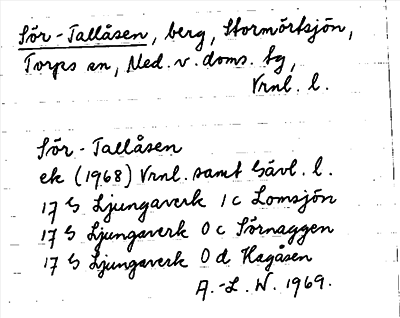 Sör-Tallåsen, berg, Stormörtsjön,
Torps sn, Med. v. doms. tg,
Vrnl. l.
Sör-Tallåsen
ek (1968) Vrnl. samt Gävl. l.
17 G Ljungaverk 1 c Lomsjön
17 G Ljungaverk 0 c Sörnaggen
17 G Ljungaverk 0 d Hagåsen
A.-L. W. 1969.